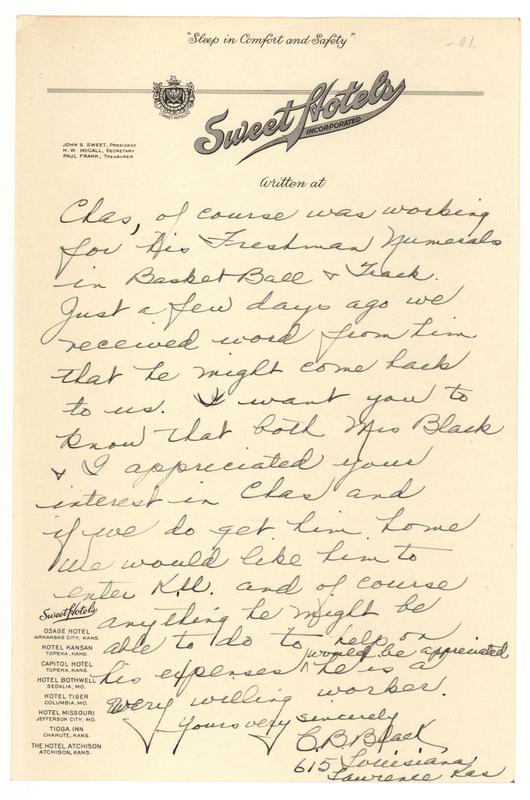 "Sleep in Comfort and Safety"
SWEET HOTELS
Sweet Hotels
INCORPORATED
JOHN S. SWEET, PRESIDENT
H. W. McCALL, SECRETARY
PAUL FRANK, TREASURER
Written at
Chas, of course was working
for his Freshman Numerals
in Basket Ball & Track.
Just a few days ago we
received word from him
that he might come back
to us. I want you to
know that both Mrs Black
& I appreciated your
interest in Chas and
if we do get him home
we would like him to
enter K.U. and of course
anything he might be
able to do to help on
his expenses would be appreciated.
he is a
very willing worker.
Yours very sincerely
C. B. Black
615 Louisiana
Lawrence Kas
Sweet Hotels
OSAGE HOTEL
ARKANSAS CITY, KANS.
HOTEL KANSAN
TOPEKA, KANS.
CAPITOL HOTEL
TOPEKA, KANS.
HOTEL BOTHWELL
SEDALIA, MO.
HOTEL TIGER
COLUMBIA, MO.
HOTEL MISSOURI
JEFFERSON CITY, MO.
TIOGA INN
CHANUTE, KANS.
THE HOTEL ATCHISON
ATCHISON, KANS.